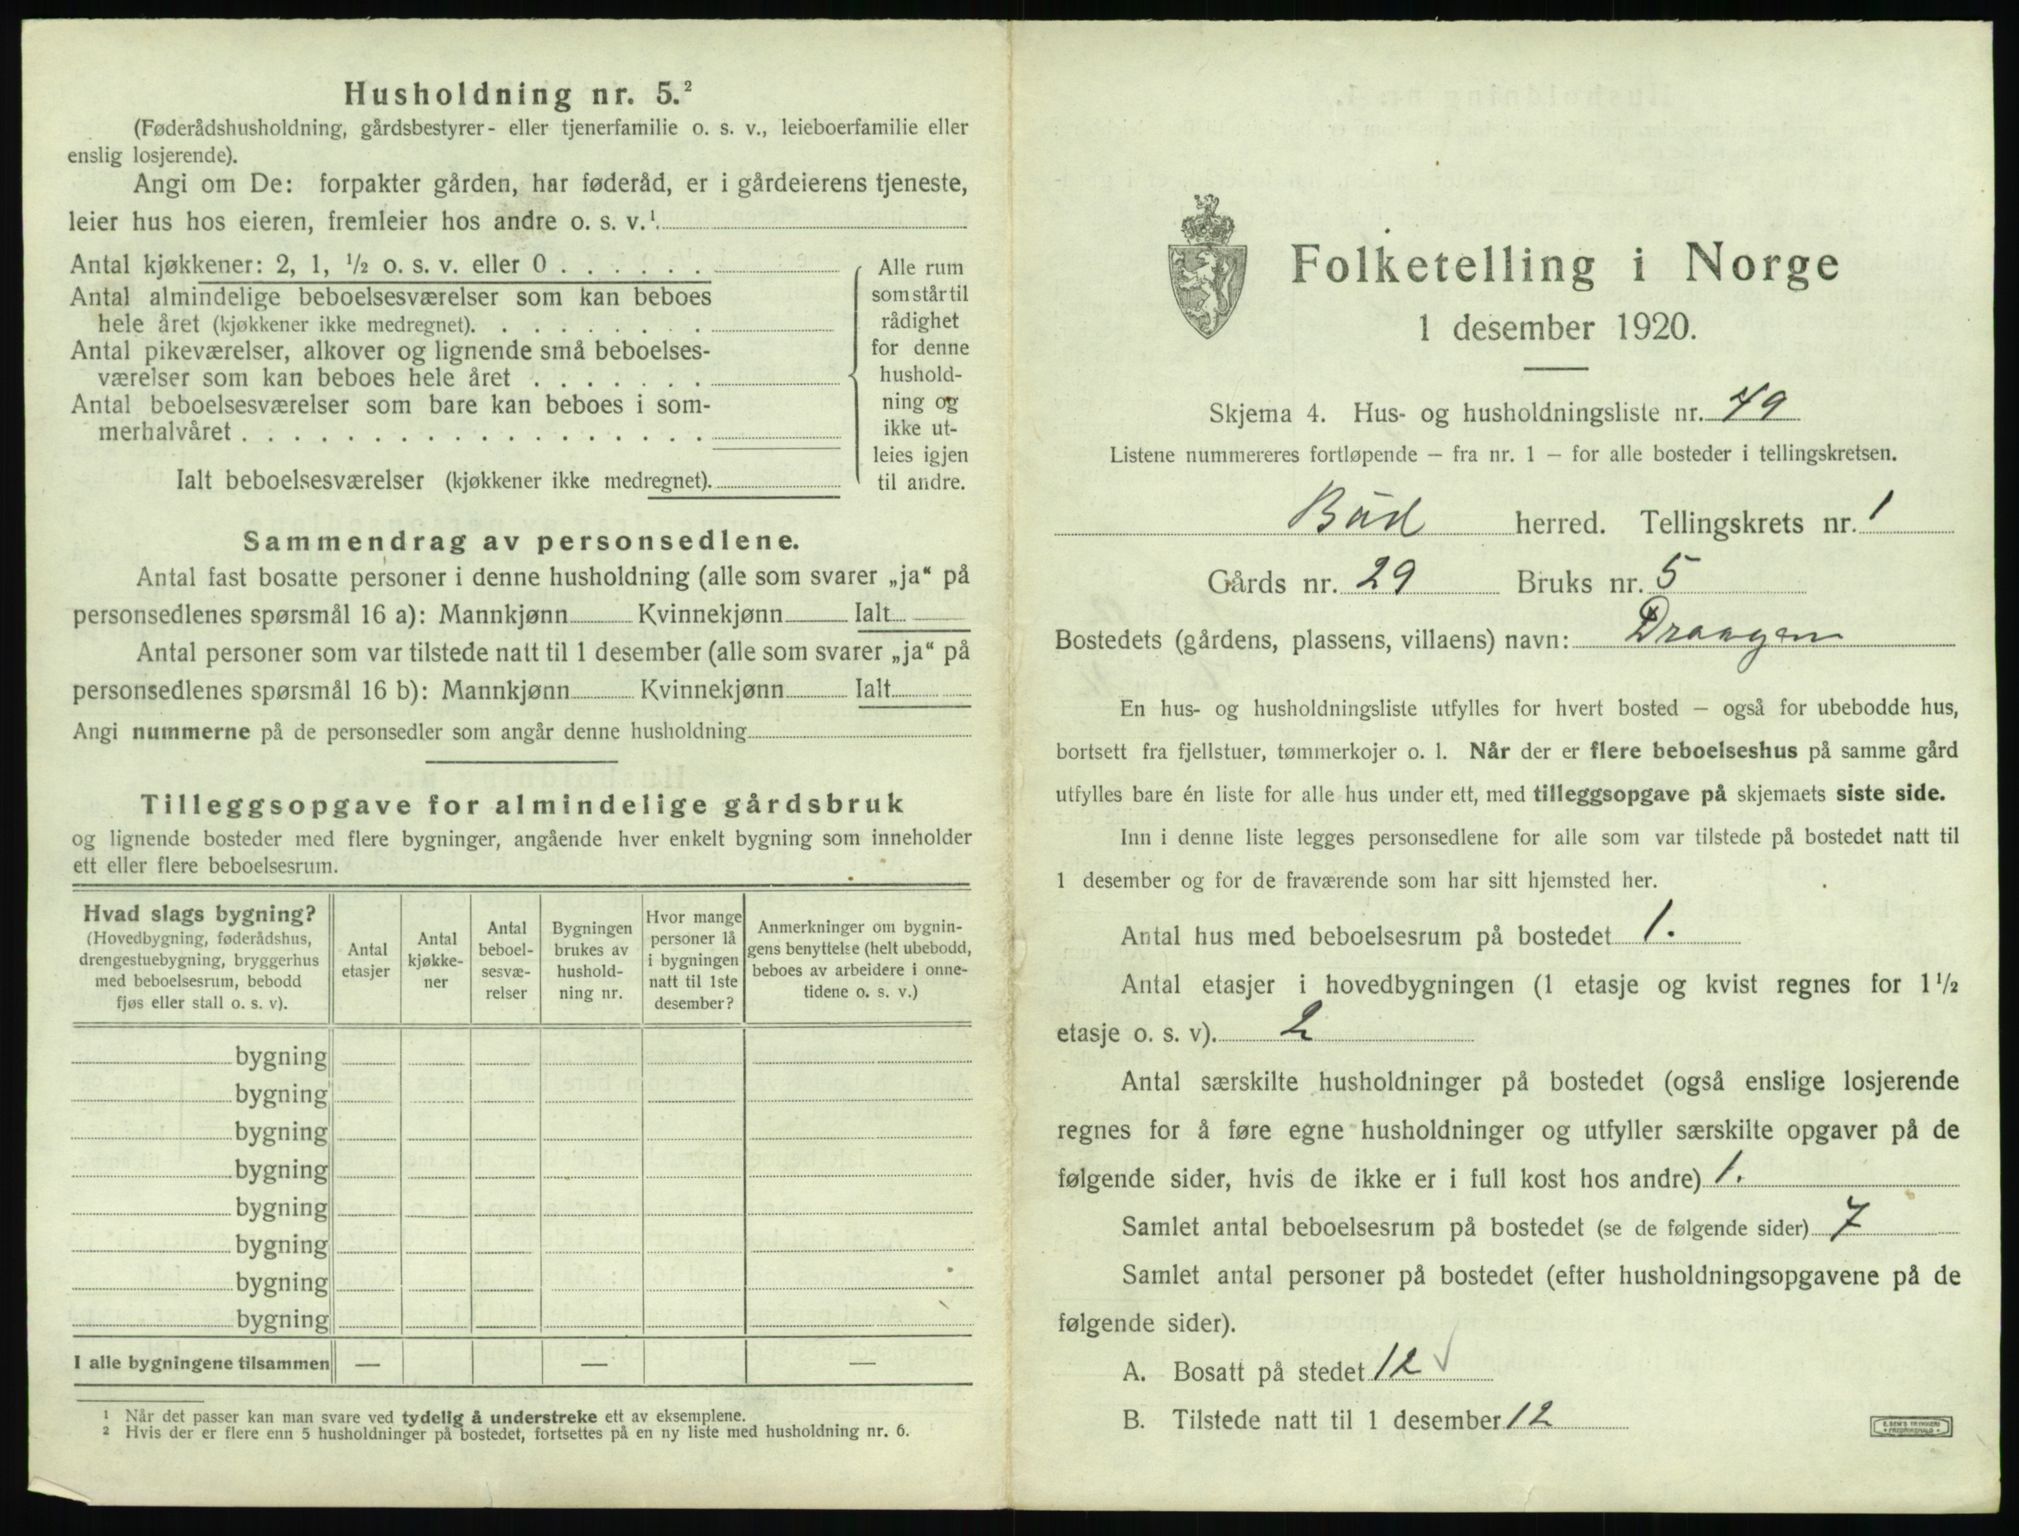 Husholdning nr. 5.²
(Føderådshusholdning, gårdsbestyrer- eller tjenerfamilie o. s. v., leieboerfamilie eller
enslig losjerende).
Angi om De: forpakter gården, har føderåd, er i gårdeierens tjeneste,
leier hus hos eieren, fremleier hos andre o. s. v.¹
Antal kjøkkener: 2, 1, ½ o. s. v. eller 0 . . . . . .
Antal almindelige beboelsesværelser som kan beboes
hele året (kjøkkener ikke medregnet). . . . . . . . .
Antal pikeværelser, alkover og lignende små beboelses-
værelser som kan beboes hele året . . . . . . .
Antal beboelsesværelser som bare kan beboes i som-
merhalvåret . . . . . . . . . . . . . . . . . .
Ialt beboelsesværelser (kjøkkener ikke medregnet).
Alle rum
som står til
rådighet
for denne
hushold-
ning og
ikke ut-
leies igjen
til andre.
Sammendrag av personsedlene.
Antal fast bosatte personer i denne husholdning (alle som svarer „ja“ på
personsedlenes spørsmål 16 a): Mannkjønn Kvinnekjønn Ialt
Antal personer som var tilstede natt til 1 desember (alle som svarer „ja“ på
personsedlenes spørsmål 16 b): Mannkjønn Kvinnekjønn Ialt
Angi nummerne på de personsedler som angår denne husholdning
Tilleggsopgave for almindelige gårdsbruk
og lignende bosteder med flere bygninger, angående hver enkelt bygning som inneholder
ett eller flere beboelsesrum.
Hvad slags bygning?
(Hovedbygning, føderådshus,
drengestuebygning, bryggerhus
med beboelsesrum, bebodd
fjøs eller stall o. s. v).
Antal
etasjer
Antal
kjøkke-
ner
Antal
beboel-
sesvæ-
relser
Bygningen
brukes av
hushold-
ning nr.
Hvor mange
personer lå
i bygningen
natt til 1ste
desember?
Anmerkninger om bygnin-
gens benyttelse (helt ubebodd,
beboes av arbeidere i onne-
tidene o. s. v.)
bygning
bygning
bygning
bygning
bygning
bygning
bygning
bygning
I alle bygningene tilsammen — — —
¹ Når det passer kan man svare ved tydelig å understreke ett av eksemplene.
² Hvis der er flere enn 5 husholdninger på bostedet, fortsettes på en ny liste med husholdning nr. 6.
Folketelling i Norge
1 desember 1920.
Skjema 4. Hus- og husholdningsliste nr. 49
Listene nummereres fortløpende – fra nr. 1 – for alle bosteder i tellingskretsen.
Búd herred. Tellingskrets nr. 1
Gårds nr. 29 Bruks nr. 5
Bostedets (gårdens, plassens, villaens) navn: Draagen
En hus- og husholdningsliste utfylles for hvert bosted – også for ubebodde hus,
bortsett fra fjellstuer, tømmerkojer o. l. Når der er flere beboelseshus på samme gård
utfylles bare én liste for alle hus under ett, med tilleggsopgave på skjemaets siste side.
Inn i denne liste legges personsedlene for alle som var tilstede på bostedet natt til
1 desember og for de fraværende som har sitt hjemsted her.
Antal hus med beboelsesrum på bostedet 1.
Antal etasjer i hovedbygningen (1 etasje og kvist regnes for 1½
etasje o. s. v). 2
Antal særskilte husholdninger på bostedet (også enslige losjerende
regnes for å føre egne husholdninger og utfyller særskilte opgaver på de
følgende sider, hvis de ikke er i full kost hos andre) 1.
Samlet antal beboelsesrum på bostedet (se de følgende sider) 7
Samlet antal personer på bostedet (efter husholdningsopgavene på de
følgende sider).
A. Bosatt på stedet 12 ✓
B. Tilstede natt til 1 desember 12
E. SEM'S TRYKKERI
FREDRIKSHALD